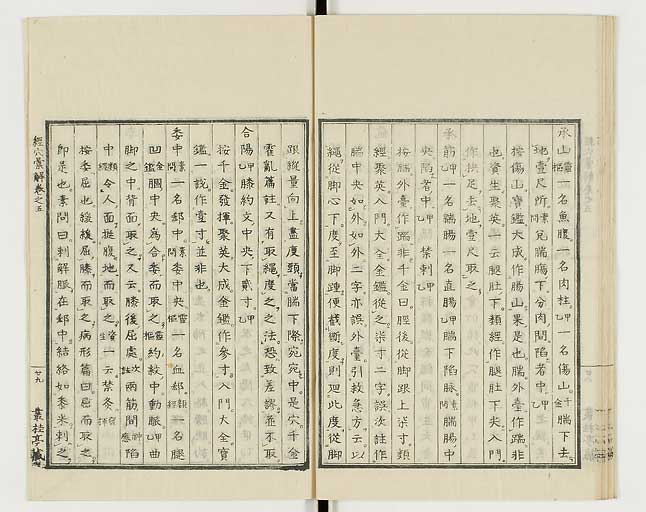 承山靈樞一名魚腹一名肉柱甲乙一名傷山千金腨下去
地壹尺所素問兌腨腸下分肉間陷者中甲乙
按傷山寶鑑大成作腸山果是也腨外臺作踹非
也資生聚英一云腿肚下類經作腿肚下尖入門
作扶足去地壹尺取之
承筋甲乙一名腨腸一名直腸甲乙腨下陷脉素問腨腸中
央陷者中甲乙禁刺甲乙
按腨外臺作踹非千金曰脛後從脚跟上柒寸類
經聚英入門大全金鑑從之柒寸二字誤次註作
腨中央如外如外二字亦誤外臺引救急方云以
繩從脚心下度至脚踵便截斷度則廻此度從脚
跟縱量向上盡度頭當腨下際宛宛中是穴千金
霍亂篇註又有取繩度之之法恐致差謬並不取
合陽甲乙膝約文中央下貳寸甲乙
按千金發揮聚英大成金鑑作參寸入門大全寶
鑑一說作壹寸並非也
委中素問一名郄中素問委中央靈樞一名血郄類經一名腿
凹金鑑膕中央爲合委而取之靈樞約紋中動脈甲乙曲
脚之中背面取之又云膝後屈處次註兩筋間神應陷
中類經令人面挺腹地而取之資生一云禁灸
按委屈也緩緩屈膝而取之病形篇曰屈而取之
即是也素問曰刺解脈在郄中結絡如黍米刺之
經穴彙解卷之五
廿九
叢桂亭藏